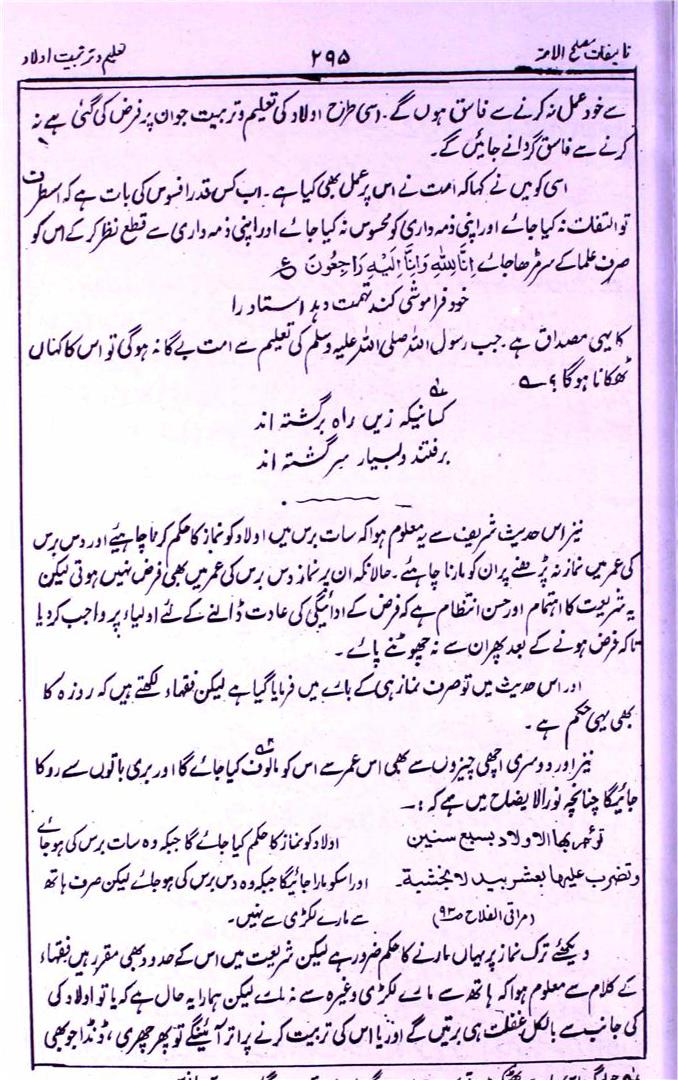 تالیفات مصلح الامۃ ۲۹۵ تعلیم و تربیت اولاد
سے خود عمل نہ کرنے سے فاسق ہوں گے۔ اسی طرح اولاد کی تعلیم و تربیت جو ان پر فرض کی گئی ہے نہ
کرنے سے فاسق گردانے جائیں گے۔
اسی کو میں نے کہا کہ امت نے اس پر عمل بھی کیا ہے۔ اب کس قدر افسوس کی بات ہے کہ اسطرف
تو التفات نہ کیا جائے اور اپنی ذمہ داری کو محسوس نہ کیا جائے اور اپنی ذمہ داری سے قطع نظر کر کے اس کو
صرف علماء کے سر مڑھا جائے اِنَّا لِلّٰهِ وَاِنَّا اِلَيْهِ رَاجِعُوْنَ ع
خود فراموشی کند تہمت دہد استاد را
کا یہی مصداق ہے۔ جب رسول اللہ صلی اللہ علیہ وسلم کی تعلیم سے امت بے گانہ ہوگی تو اس کا کہاں
ٹھکانا ہوگا؟ ؎
کسانیکہ زیں راہ برگشتہ اند
برفتند و بسیار سرگشتہ اند
نیز اس حدیث شریف سے یہ معلوم ہوا کہ سات برس میں اولاد کو نماز کا حکم کرنا چاہیئے اور دس برس
کی عمر میں نماز نہ پڑھنے پر ان کو مارنا چاہئے۔ حالانکہ ان پر نماز دس برس کی عمر میں بھی فرض نہیں ہوتی لیکن
یہ شریعت کا اہتمام اور حسن انتظام ہے کہ فرض کے ادائیگی کی عادت ڈالنے کے لئے اولیاء پر واجب کر دیا
تاکہ فرض ہونے کے بعد پھر ان سے نہ چھوٹنے پائے۔
اور اس حدیث میں تو صرف نماز ہی کے بارے میں فرمایا گیا ہے لیکن فقہاء لکھتے ہیں کہ روزہ کا
بھی یہی حکم ہے۔
نیز اور دوسری اچھی چیزوں سے بھی اس عمر سے اس کو مالوف کیا جائے گا اور بری باتوں سے روکا
جائیگا چنانچہ نورالایضاح میں ہے کہ :۔
تؤمر بہا الاولاد بسبع سنین اولاد کو نماز کا حکم کیا جائے گا جبکہ وہ سات برس کی ہو جائے
وتضرب علیہا بعشر بید لا بخشبة۔ اور اسکو مارا جائیگا جبکہ وہ دس برس کی ہو جائے لیکن صرف ہاتھ
(مراقی الفلاح ص۹۳) سے مارے لکڑی سے نہیں۔
دیکھئے ترک نماز پر یہاں مارنے کا حکم ضرور ہے لیکن شریعت میں اس کے حدود بھی مقرر ہیں فقہاء
کے کلام سے معلوم ہوا کہ ہاتھ سے مارے لکڑی وغیرہ سے نہ مارے لیکن ہمارا یہ حال ہے کہ یا تو اولاد کی
کی جانب سے بالکل غفلت ہی برتیں گے اور یا اس کی تربیت کرنے پر اتر آئینگے تو پھر چھری، ڈنڈا جو بھی